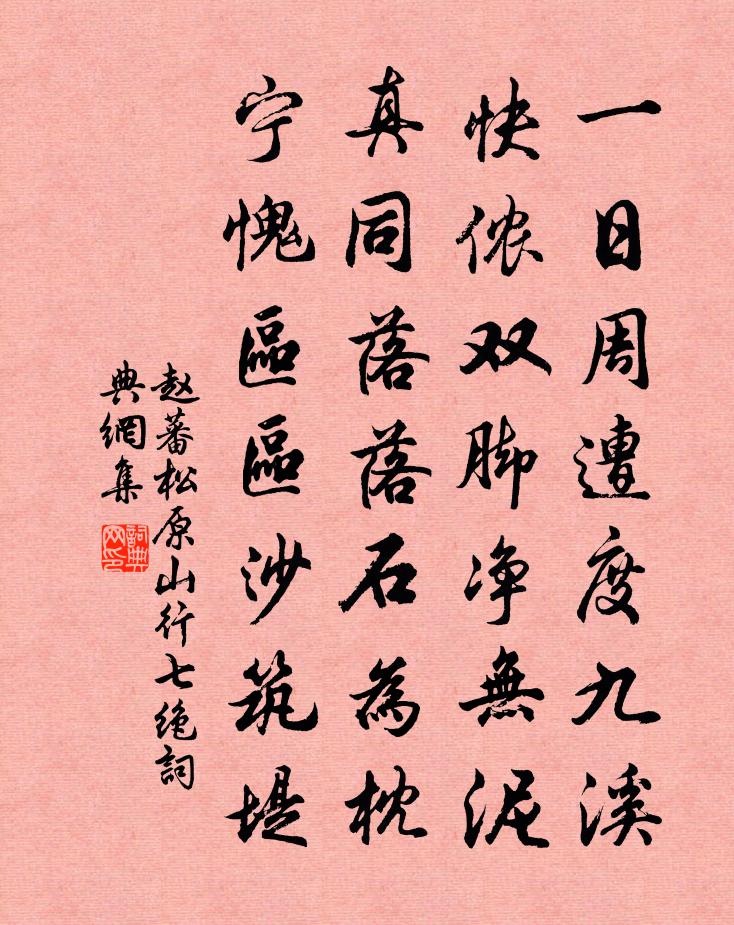 一日周遭度九溪
快侬双脚净無泥
真同落落石為枕
宁愧區區沙筑堤
赵蕃松原山行七绝詞
典網集
詞典网印